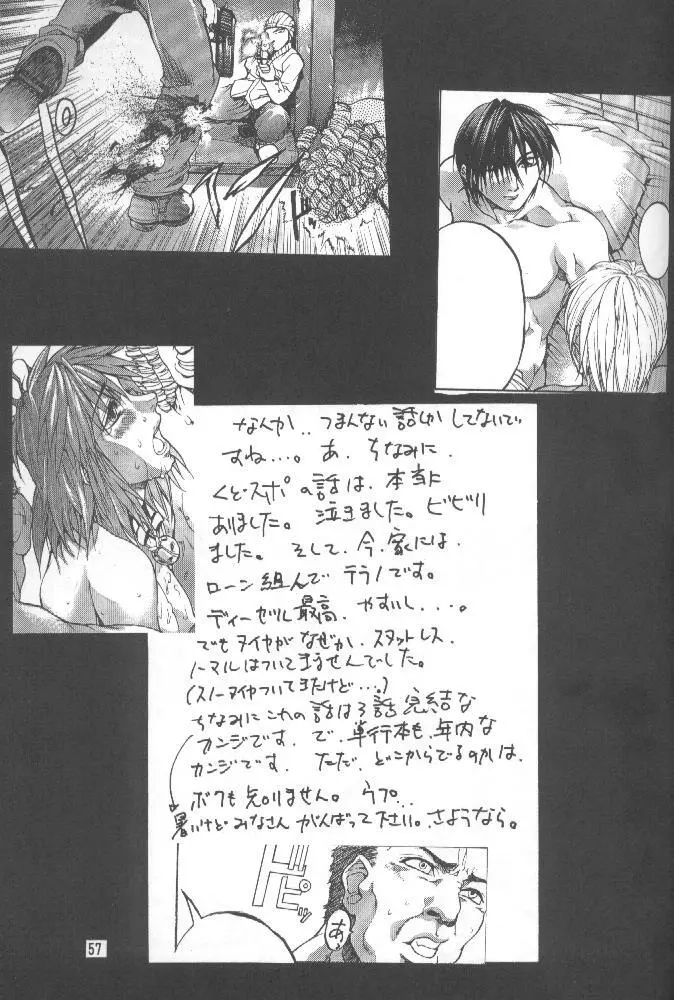 なんか‥つまんない話しか してないで
すね…。あ、ちなみに、
くど・スポの話は、本当に
ありました。泣きました。ビビリ
ました。そして、今、家には、
ローン組んで テラノです。
ディーゼル最高、やすいし...。
でもタイヤがなぜか、スタットレス、
ノーマルはついてきませんでした。
(スノータイヤついてきたけど…。)
ちなみにこれの話は3話完結な
カンジです、で、単行本も、年内な
カンジです、ただ、どこからでるのかは、
ボクも知りません。ウプ...
暑いけど みなさん がんばって下さい。さようなら。
ビッ
あ、
57